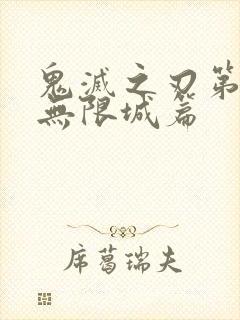 鬼滅之刃第
無限城篇
席葛瑞夫